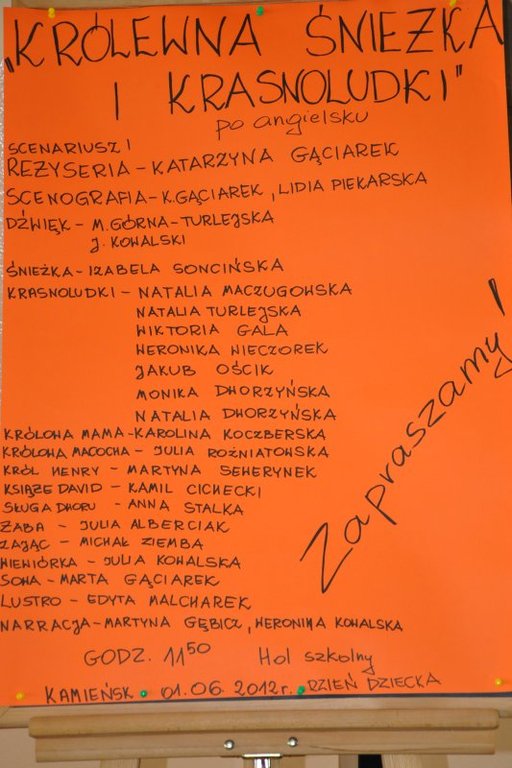 „KRÓLEWNA ŚNIEŻKA
I KRASNOLUDKI"
po angielsku
SCENARIUSZ I
REŻYSERIA - KATARZYNA GĄCIAREK
SCENOGRAFIA - K.GĄCIAREK, LIDIA PIEKARSKA
DŹWIĘK - M.GÓRNA-TURLEJSKA
J. KOWALSKI
ŚNIEŻKA - IZABELA SONCIŃSKA
KRASNOLUDKI - NATALIA MACZUGOWSKA
NATALIA TURLEJSKA
WIKTORIA GALA
WERONIKA WIECZOREK
JAKUB OŚCIK
MONIKA DWORZYŃSKA
NATALIA DWORZYŃSKA
KRÓLOWA MAMA - KAROLINA KOCZBERSKA
KRÓLOWA MACOCHA - JULIA ROŻNIATOWSKA
KRÓL HENRY - MARTYNA SEWERYNEK
KSIĄŻE DAVID - KAMIL CICHECKI
SŁUGA DWORU - ANNA STALKA
ŻABA - JULIA ALBERCIAK
ZAJĄC - MICHAŁ ZIEMBA
WIEWIÓRKA - JULIA KOWALSKA
SOWA - MARTA GĄCIAREK
LUSTRO - EDYTA MALCHAREK
NARRACJA - MARTYNA GĘBICZ, WERONIKA KOWALSKA
Zapraszamy!
GODZ. 11⁵⁰ Hol szkolny
KAMIEŃSK 01.06.2012r. DZIEŃ DZIECKA